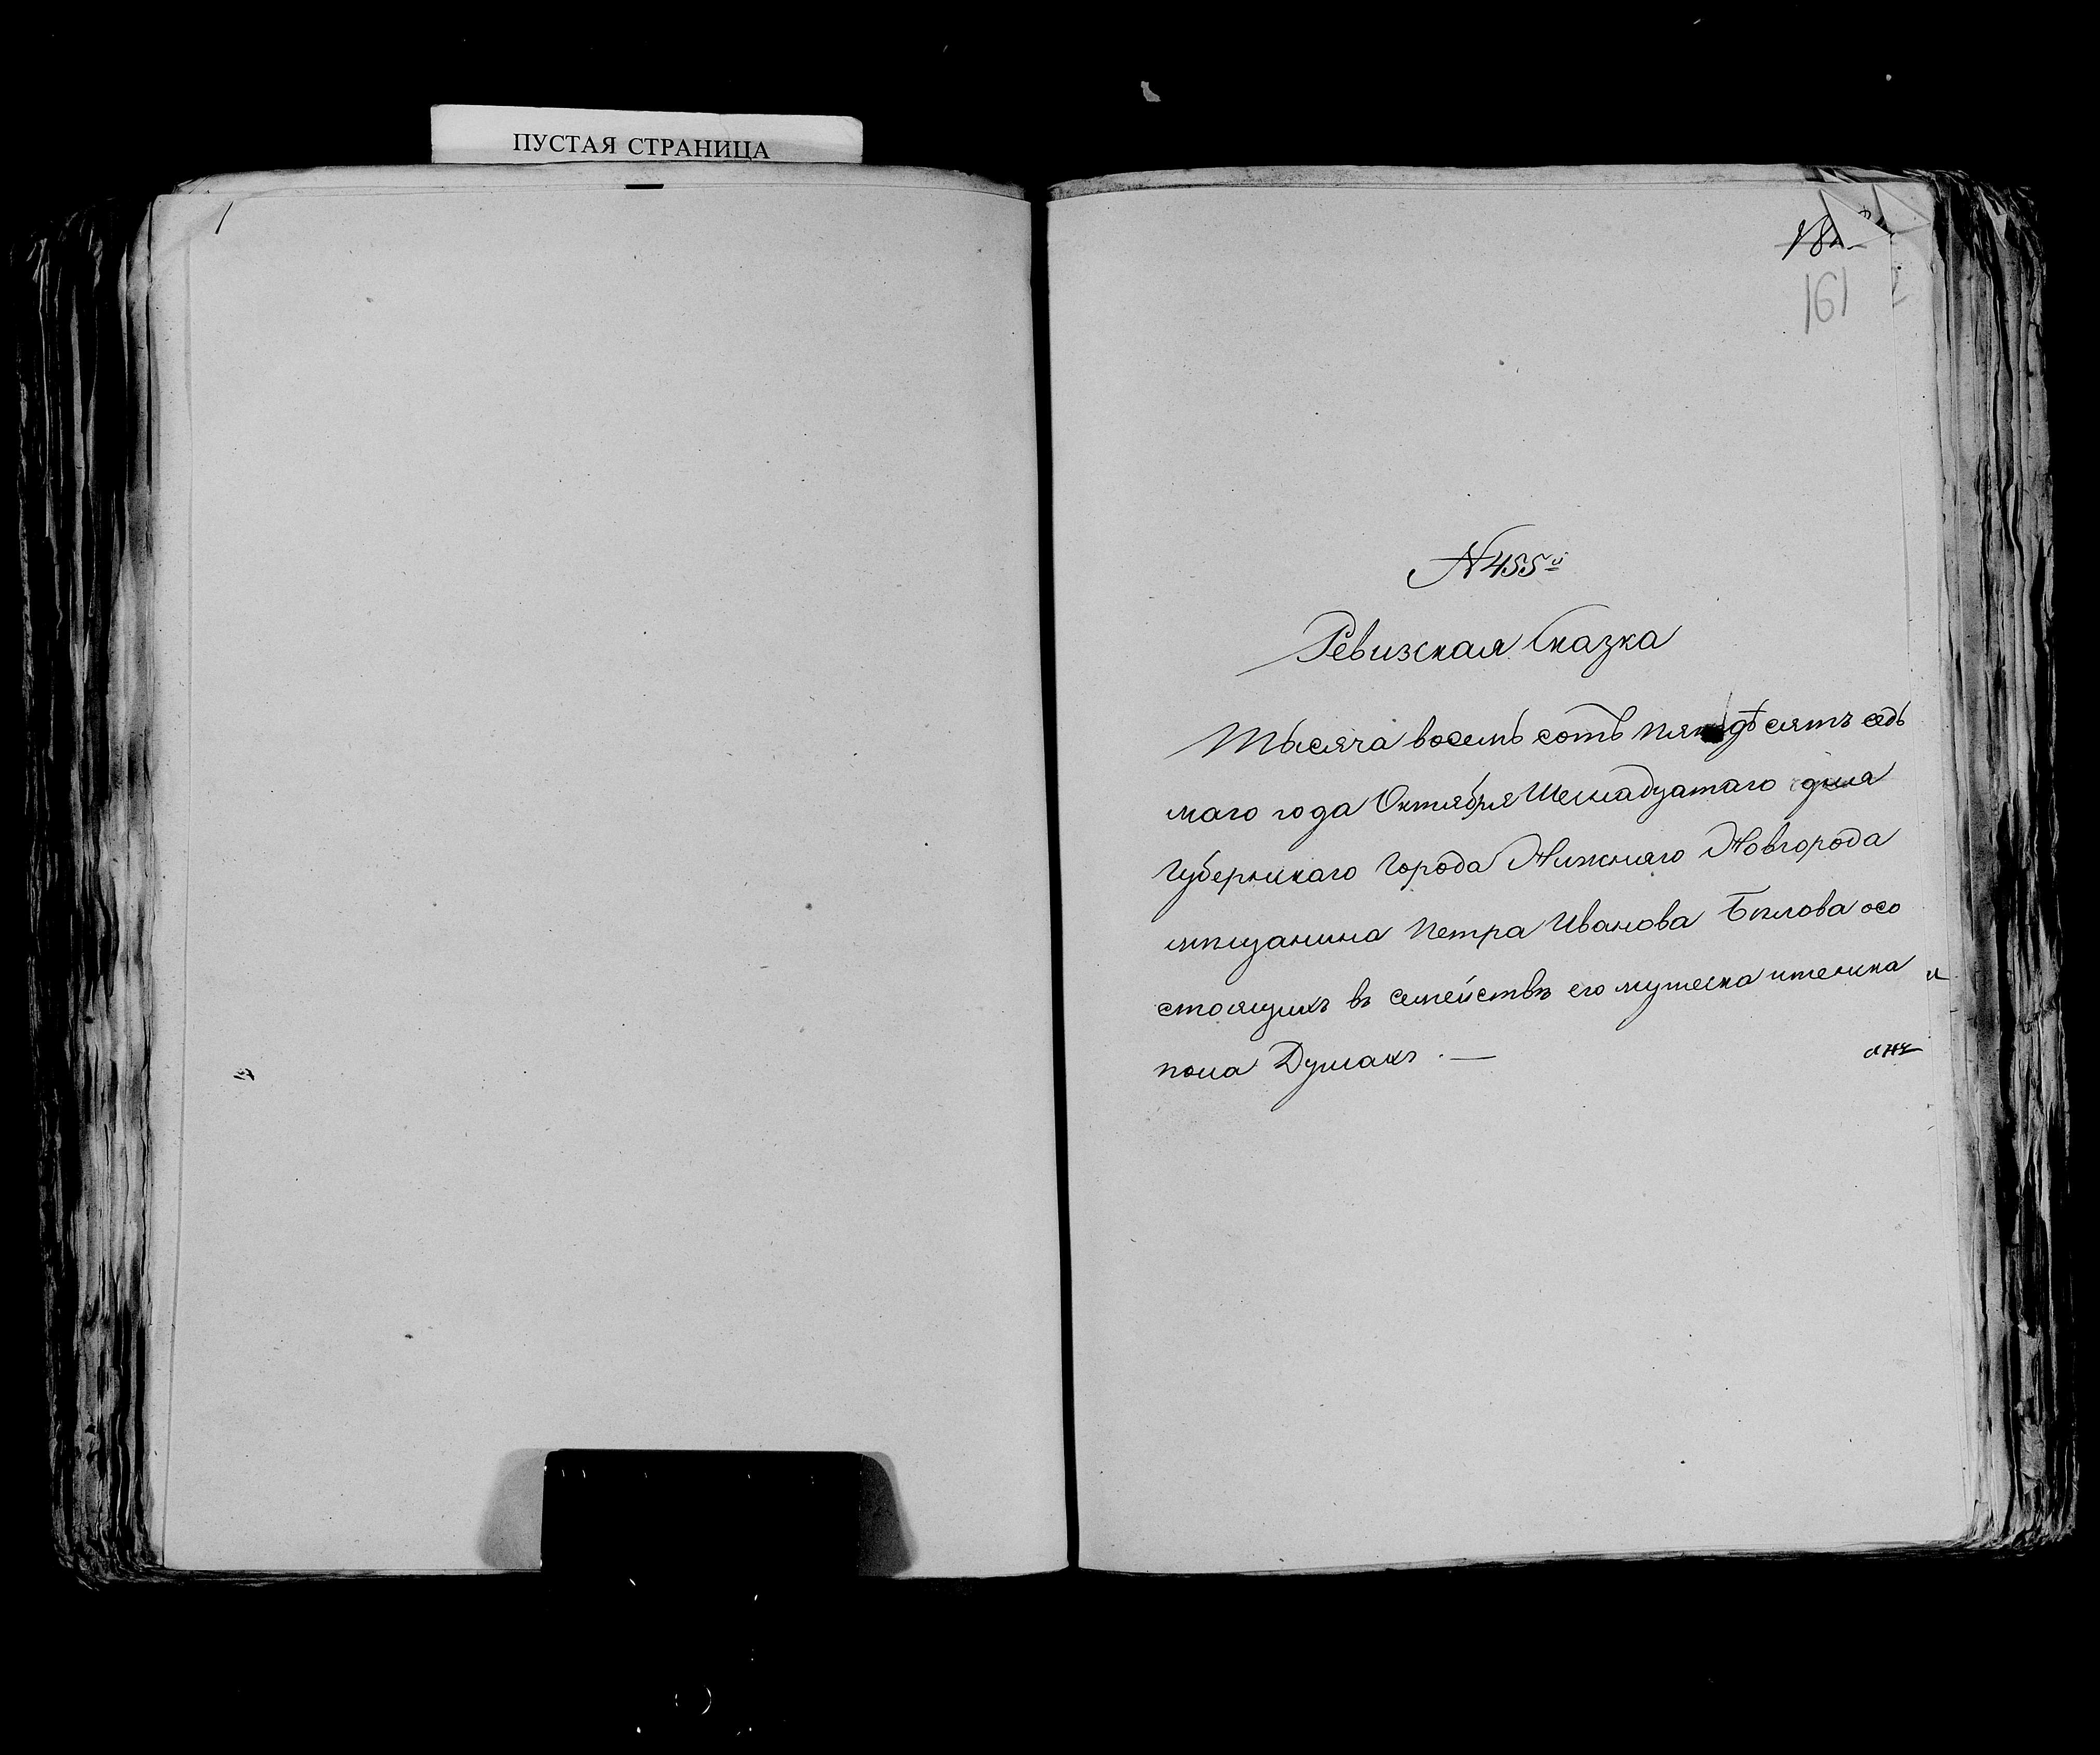 ПУСТАЯ СТРАНИЦА
161
N 455й
Ревизская Сказка
Тысяча восемь сотъ пятьдѣсятъ седь
маго года Октября Шеснадцатаго дня
Губернскаго Города Нижняго Новгорода
мѣщанина Петра Иванова Бѣлова осо
стоящихъ въ семействѣ его мужеска иженска
пола Душахъ. —